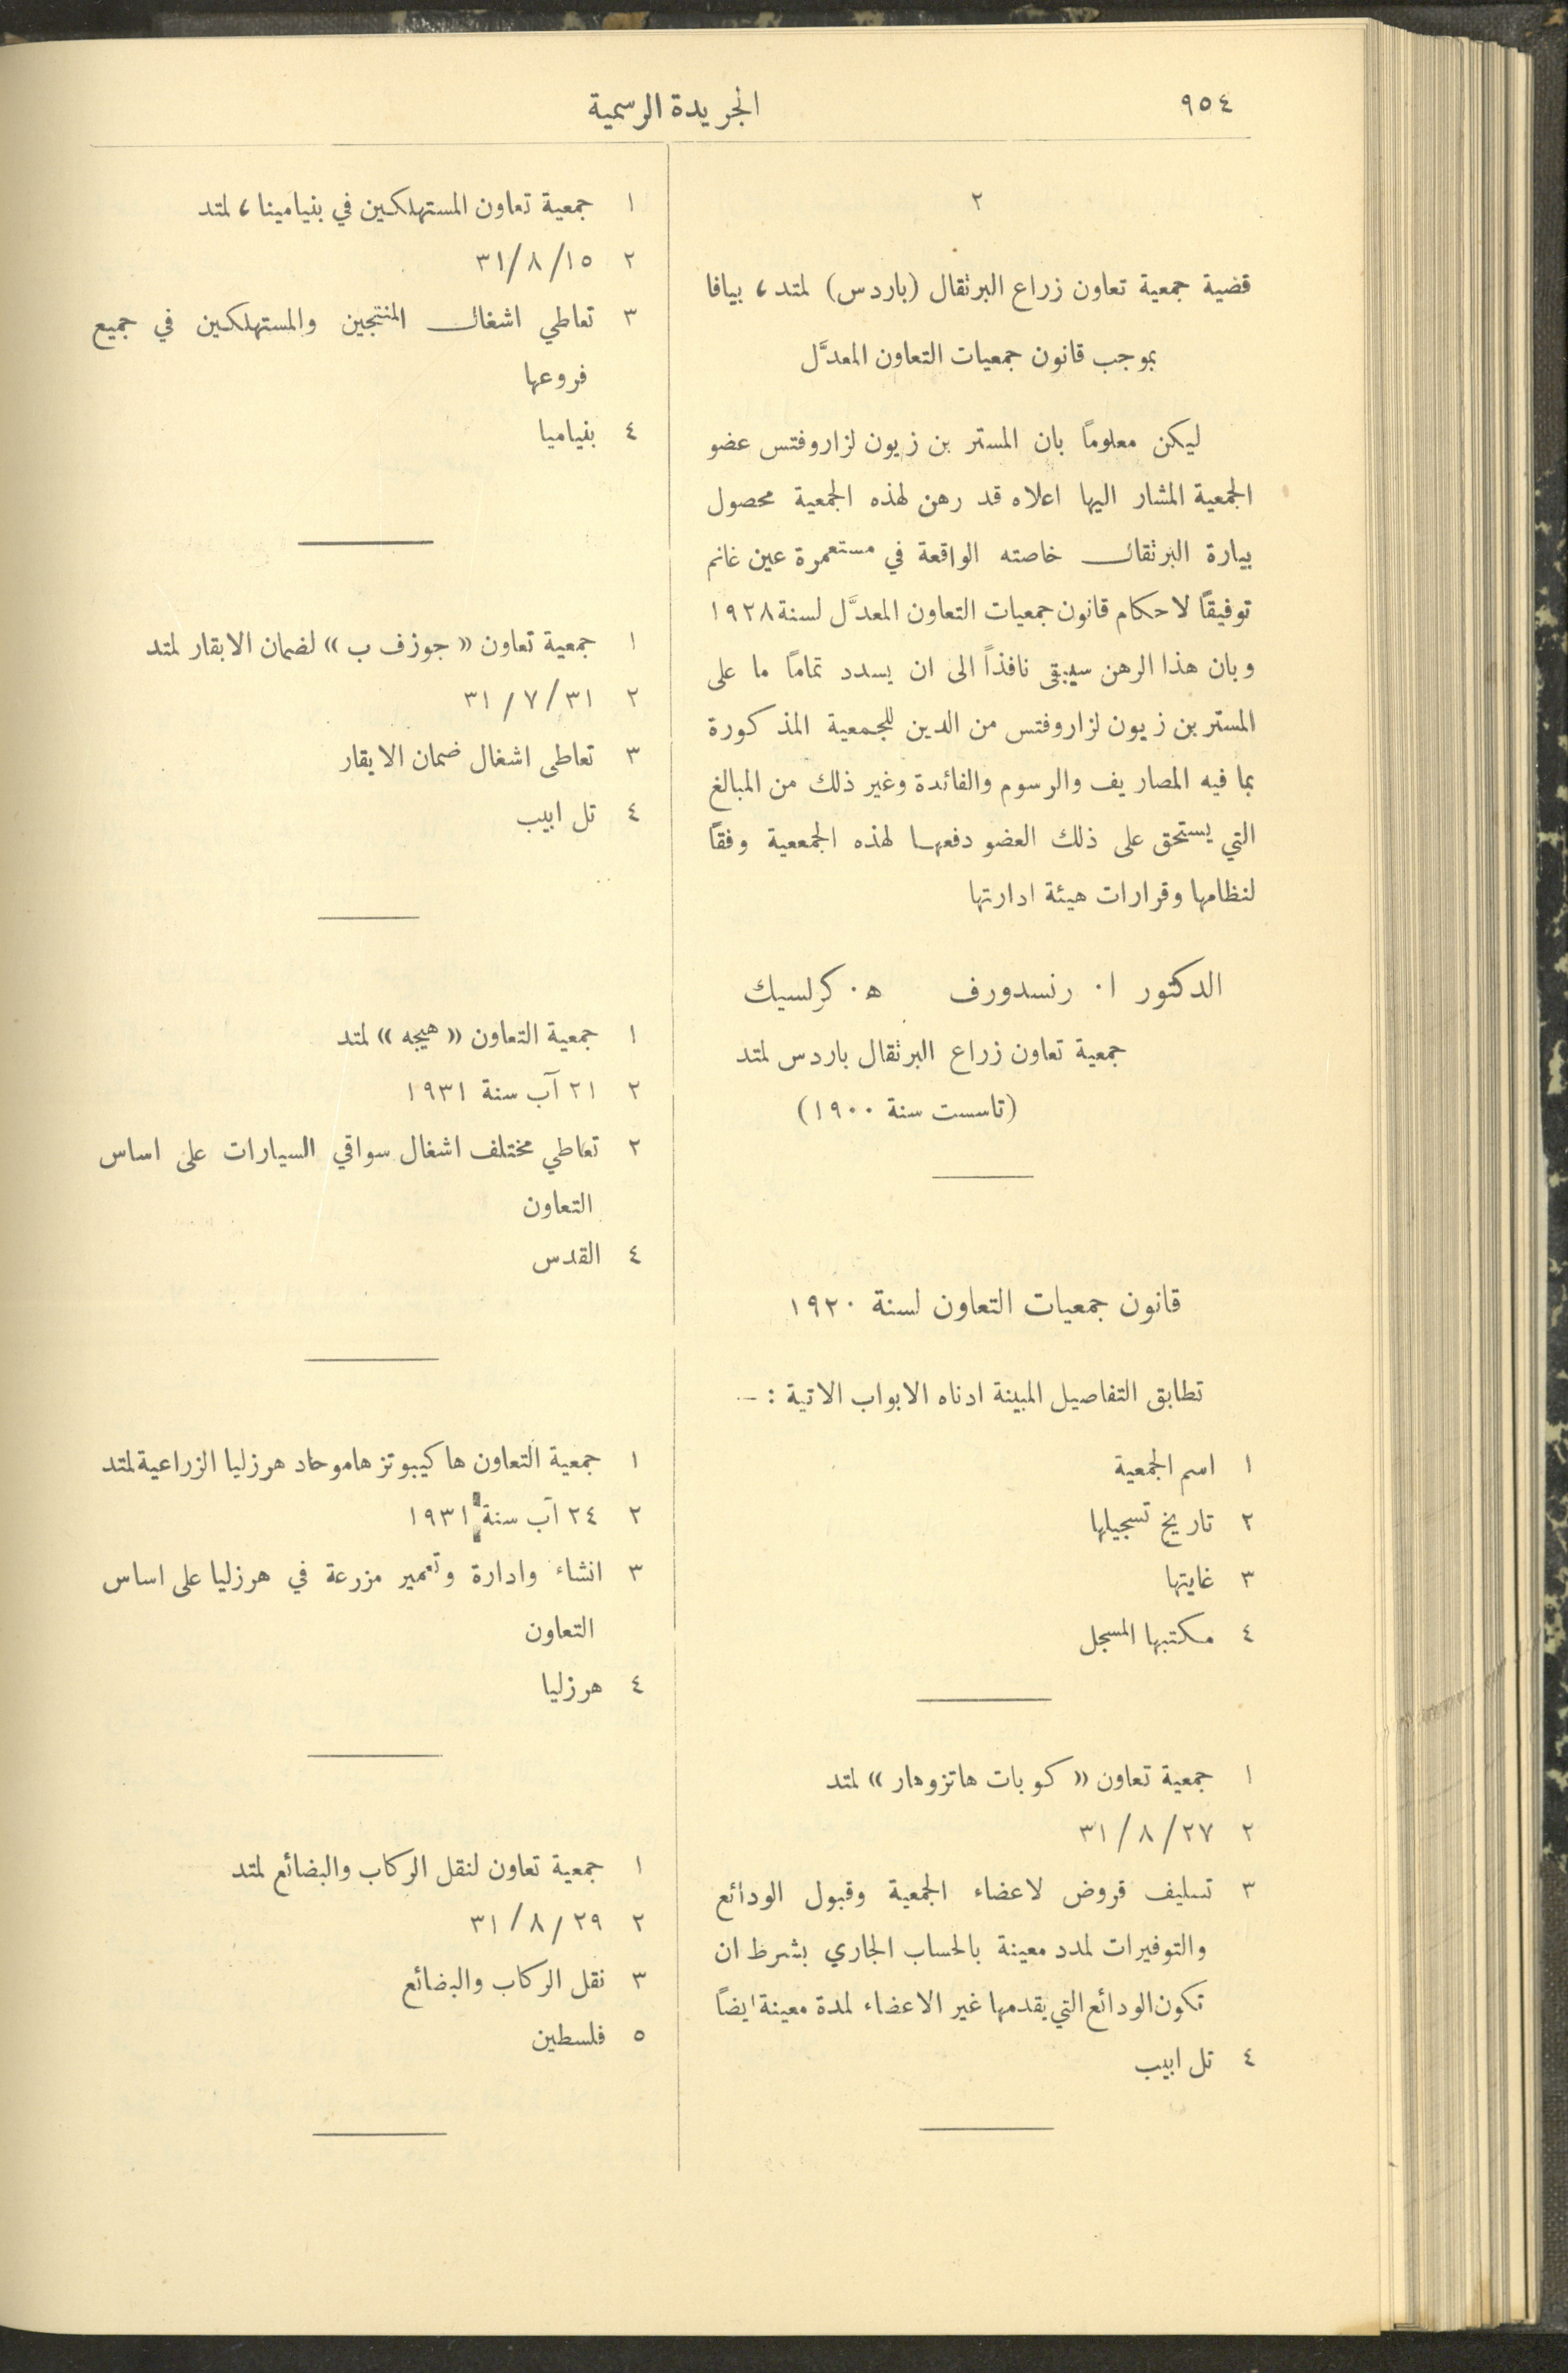 ٩٥٤
الجريدة الرسمية
٢
قضية جمعية تعاون زراع البرتقال (باردس) لمتد، بيافا
بموجب قانون جمعيات التعاون المعدَّل
ليكن معلومًا بان المستر بن زيون لزاروفتس عضو
الجمعية المشار اليها اعلاه قد رهن لهذه الجمعية محصول
بيارة البرتقال خاصته الواقعة في مستعمرة عين غانم
توفيقًا لاحكام قانون جمعيات التعاون المعدَّل لسنة ١٩٢٨
وبان هذا الرهن سيبقى نافذاً الى ان يسدد تمامًا ما على
المستر بن زيون لزاروفتس من الدين للجمعية المذكورة
بما فيه المصاريف والرسوم والفائدة وغير ذلك من المبالغ
التي يستحق على ذلك العضو دفعها لهذه الجمععية وفقًا
لنظامها وقرارات هيئة ادارتها
الدكتور ا. رنسدورف ه. كرلسيك
جمعية تعاون زراع البرتقال باردس لمتد
(تاسست سنة ١٩٠٠)
قانون جمعيات التعاون لسنة ١٩٢٠
تطابق التفاصيل المبينة ادناه الابواب الاتية : —
١ اسم الجمعية
٢ تاريخ تسجيلها
٣ غايتها
٤ مكتبها المسجل
١ جمعية تعاون « كوبات هاتزوهار » لمتد
٢ ٣١/٨/٢٧
٣ تسليف قروض لاعضاء الجمعية وقبول الودائع
والتوفيرات لمدد معينة بالحساب الجاري بشرط ان
تكون الودائع التي يقدمها غير الاعضاء لمدة معينة ايضًا
٤ تل ابيب
١ جمعية تعاون المستهلكين في بنيامينا، لمتد
٢ ٣١/٨/١٥
٣ تعاطي اشغال المنتجين والمستهلكين في جميع
فروعها
٤ بنياميا
١ جمعية تعاون « جوزف ب » لضمان الابقار لمتد
٢ ٣١/٧/٣١
٣ تعاطى اشغال ضمان الابقار
٤ تل ابيب
١ جمعية التعاون « هيجه » لمتد
٢ ٢١ آب سنة ١٩٣١
٢ تعاطي مختلف اشغال سواقي السيارات على اساس
التعاون
٤ القدس
١ جمعية التعاون هاكيبوتز هاموحاد هرزليا الزراعية لمتد
٢ ٢٤ آب سنة ١٩٣١
٣ انشاء وادارة وتعمير مزرعة في هرزليا على اساس
التعاون
٤ هرزليا
١ جمعية تعاون لنقل الركاب والبضائع لمتد
٢ ٣١/٨/٢٩
٣ نقل الركاب والبضائع
٥ فلسطين